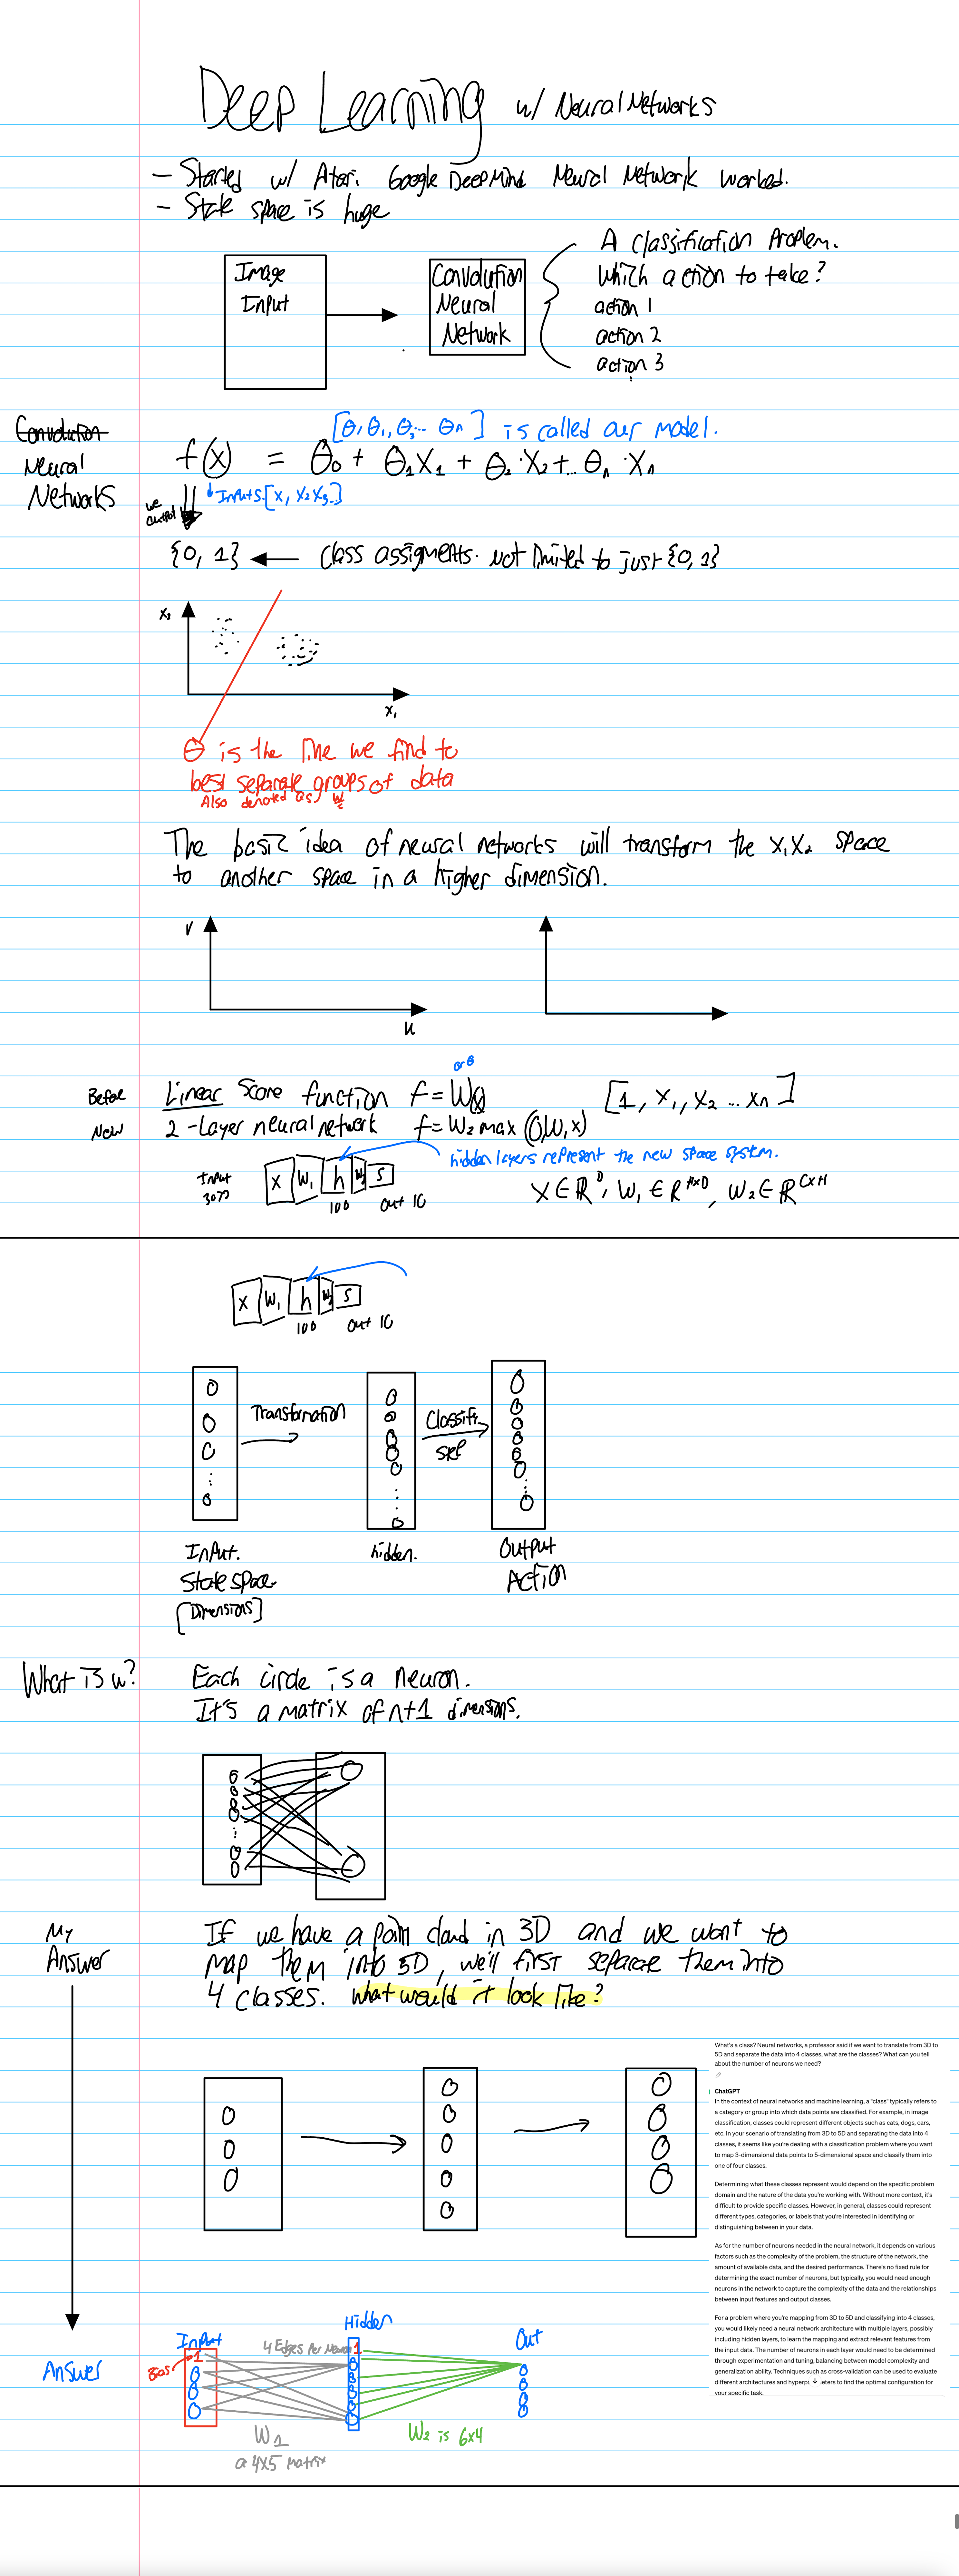 Deep Learning w/ Neural Networks
- Started w/ Atari. Google DeepMind Neural Network worked.
- State space is huge
Image
Input
Convolution
Neural
Network
A classification Problem.
Which action to take?
action 1
action 2
action 3
Convolution
Neural
Networks
[θ, θ₁, θ₂... θn] is called our model.
f(x) = θ₀ + θ₁x₁ + θ₂·x₂+... θn·xn
Inputs.[x, x₂ x₃...]
we
output
{0, 1} ← class assigments. not limited to just {0, 1}
x₂
x₁
θ is the line we find to
best separate groups of data
Also denoted as w
The basic idea of neural networks will transform the x₁x₂ space
to another space in a higher dimension.
v
u
or θ
Before
Linear Score function f = W(x)
[1, x₁, x₂ ... xn]
Now
2-Layer neural network f = W₂ max(0,W₁x)
hidden layers represent the new space system.
Input
x W₁ h W₂ s
100 out 10
x ∈ ℝᴰ, W₁ ∈ ℝᴴˣᴰ, W₂ ∈ ℝᶜˣᴴ
x W₁ h W₂ s
100 out 10
Transformation
Classify
Input.
State space
[Dimensions]
hidden.
Output
Action
What is w?
Each circle is a neuron.
It's a matrix of n+1 dimensions.
My
Answer
If we have a point cloud in 3D and we want to
map them into 5D, we'll first separate them into
4 classes. what would it look like?
What's a class? Neural networks, a professor said if we want to translate from 3D to
5D and separate the data into 4 classes, what are the classes? What can you tell
about the number of neurons we need?
ChatGPT
In the context of neural networks and machine learning, a "class" typically refers to
a category or group into which data points are classified. For example, in image
classification, classes could represent different objects such as cats, dogs, cars,
etc. In your scenario of translating from 3D to 5D and separating the data into 4
classes, it seems like you're dealing with a classification problem where you want
to map 3-dimensional data points to 5-dimensional space and classify them into
one of four classes.
Determining what these classes represent would depend on the specific problem
domain and the nature of the data you're working with. Without more context, it's
difficult to provide specific classes. However, in general, classes could represent
different types, categories, or labels that you're interested in identifying or
distinguishing between in your data.
As for the number of neurons needed in the neural network, it depends on various
factors such as the complexity of the problem, the structure of the network, the
amount of available data, and the desired performance. There's no fixed rule for
determining the exact number of neurons, but typically, you would need enough
neurons in the network to capture the complexity of the data and the relationships
between input features and output classes.
For a problem where you're mapping from 3D to 5D and classifying into 4 classes,
you would likely need a neural network architecture with multiple layers, possibly
including hidden layers, to learn the mapping and extract relevant features from
the input data. The number of neurons in each layer would need to be determined
through experimentation and tuning, balancing between model complexity and
generalization ability. Techniques such as cross-validation can be used to evaluate
different architectures and hyperpa eters to find the optimal configuration for
your specific task.
Answer
Input
Hidden
Out
4 Edges Per Neuron
Bias
1
1
W₁
a 4x5 matrix
W₂ is 6x4